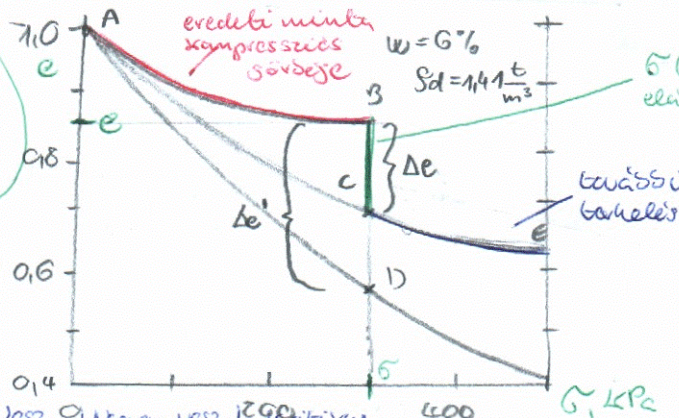 1,0
A
eredeti minta
kompressziós
görbéje
w = 6%
ρd = 1,41 t/m³
e
B
σ
e
0,8
C
Δe
további
terhelés
Δe'
e
0,6
D
0,4
σ
200
400
σ, kPa